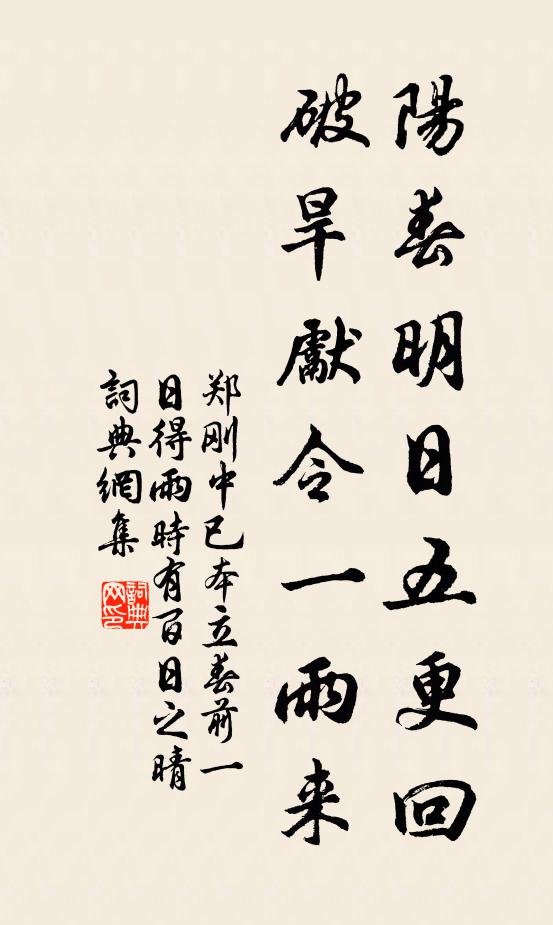 陽春明日五更回
破旱獻令一雨来
郑刚中已本立春前一
日得雨時有百日之晴
詞典網集
詞典网印